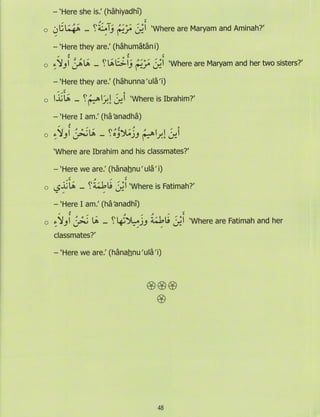 – 'Here she is.' (hâhiyadhî)
o أَيْنَ مَرْيَمُ وَآمِنَةُ؟ – هَاهُمَاتَانِ 'Where are Maryam and Aminah?'
– 'Here they are.' (hâhumâtâni)
o أَيْنَ مَرْيَمُ وَأُخْتَاهَا؟ – هَاهُنَّ أُولَاءِ 'Where are Maryam and her two sisters?'
– 'Here they are.' (hâhunna'ulâ'i)
o أَيْنَ إِبْرَاهِيمُ؟ – هَأَنَذَا 'Where is Ibrahim?'
– 'Here I am.' (hâ'anadhâ)
o أَيْنَ إِبْرَاهِيمُ وَزُمَلَاؤُهُ؟ – هَانَحْنُ أُولَاءِ
'Where are Ibrahim and his classmates?'
– 'Here we are.' (hânahnu'ulâ'i)
o أَيْنَ فَاطِمَةُ؟ – هَأَنَذِي 'Where is Fatimah?'
– 'Here I am.' (hâ'anadhî)
o أَيْنَ فَاطِمَةُ وَزَمِيلَاتُهَا؟ – هَا نَحْنُ أُولَاءِ 'Where are Fatimah and her
classmates?'
– 'Here we are.' (hânahnu'ulâ'i)
48